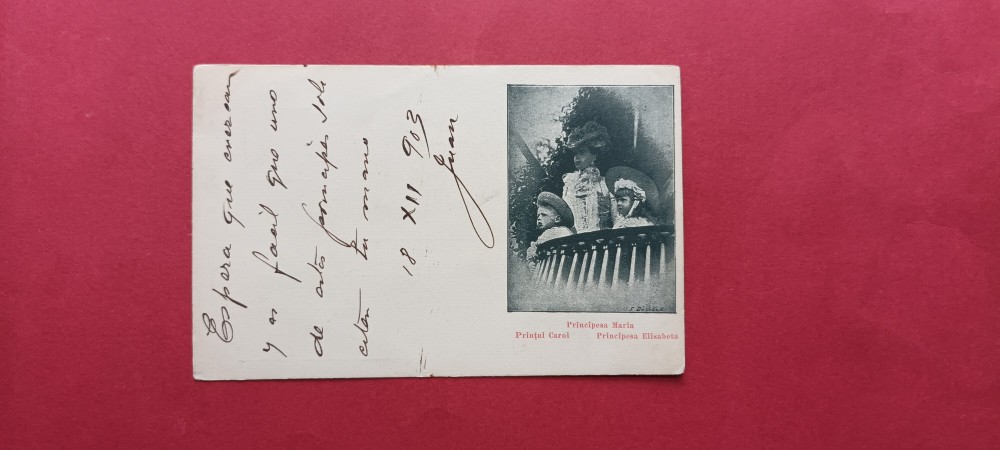 Espera que crezcan
y es facil que uno
de estos principes sole
citen tu mano
18 XII 903
Juan
Principesa Maria
Prințul Carol Principesa Elisabeta